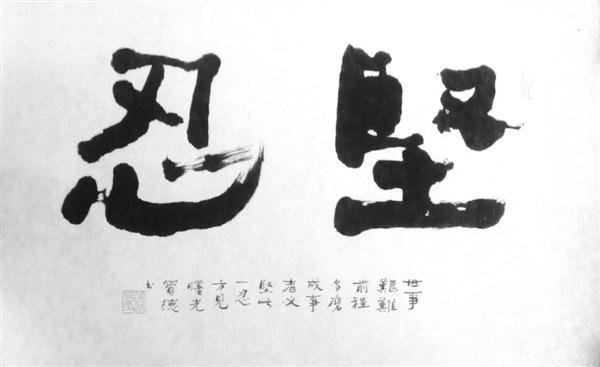 堅忍
世事
艱難
前程
多磨
成事
者
堅此
一忍
方見
曙光
德
书